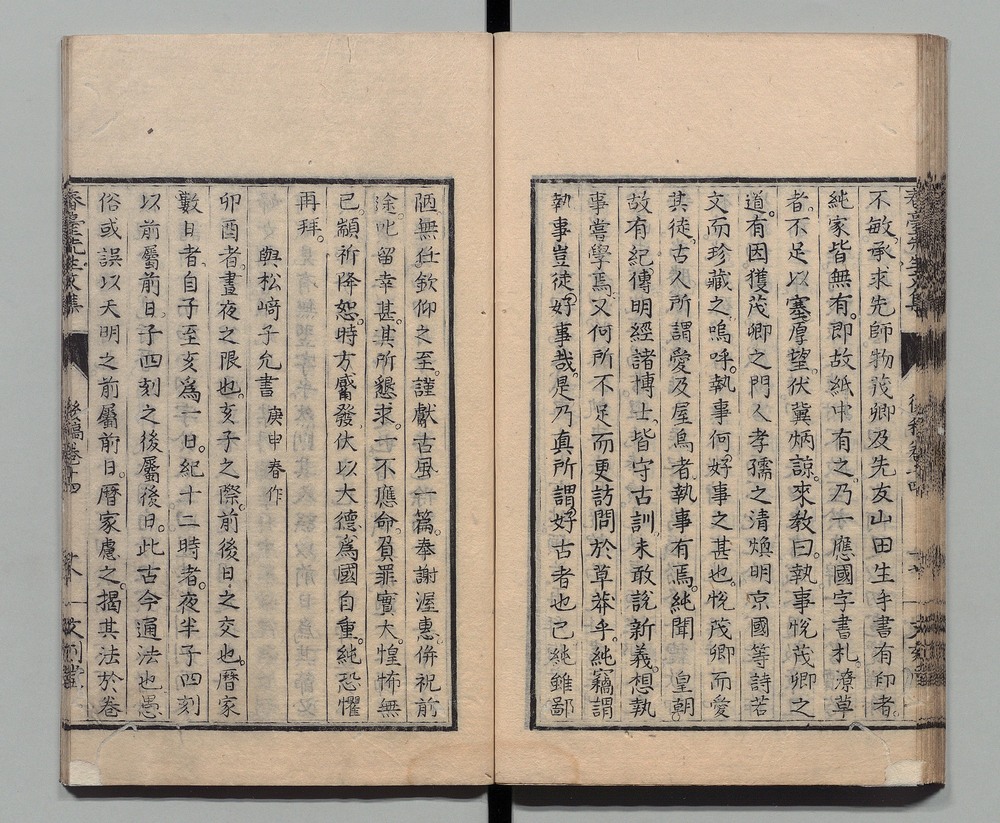 不敏承求先師物茂卿及先友山田生手書有印者。
純家皆無有。即故紙中有之。乃一應國字書札。潦草
者。不足以塞厚望。伏冀炳諒。來教曰。執事悅茂卿之
道。有因獲茂卿之門人孝孺之清煥明京國等詩若
文而珍藏之。嗚呼。執事何好事之甚也。悅茂卿而愛
其徒。古人所謂愛及屋烏者。執事有焉。純聞 皇朝
故有紀傳明經諸博士。皆守古訓。未敢說新義。想執
事嘗學焉。又何所不足而更訪問於草莽乎。純竊謂
執事豈徒好事哉。是乃真所謂好古者也已純雖鄙
陋無任欽仰之至。謹獻古風一篇。奉謝渥惠。倂祝前
途。叱留幸甚。其所懇求。一不應命。負罪實大。惶怖無
已。顓祈降恕。時方觱發。伏以大德爲國自重。純恐懼
再拜。
與松﨑子允書 庚申春作
卯酉者。晝夜之限也。亥子之際。前後日之交也。曆家
數日者。自子至亥爲一日。紀十二時者。夜半子四刻
以前屬前日。子四刻之後屬後日。此古今通法也愚
俗或誤以天明之前屬前日。曆家慮之。揭其法於卷
春臺先生文集
後稿卷十四